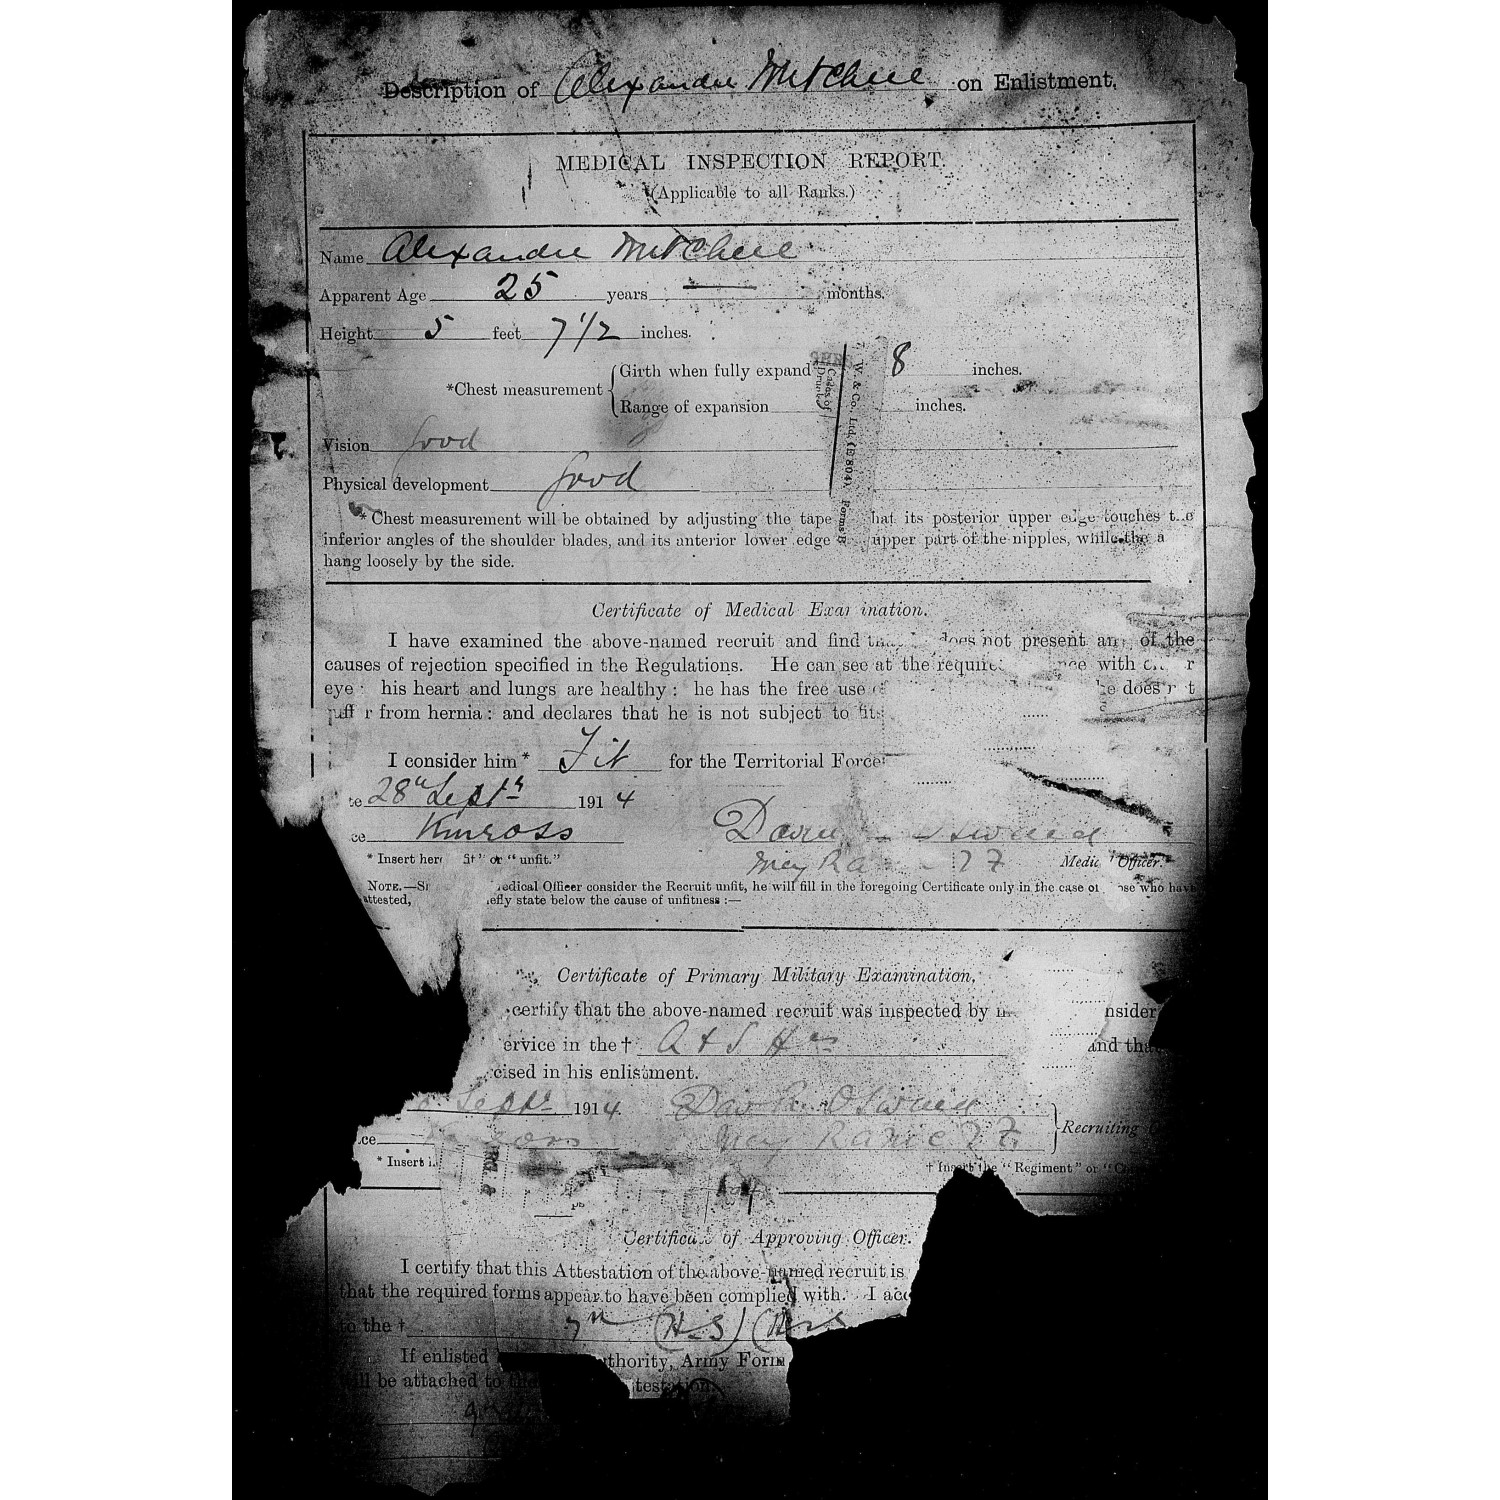 Description of Alexander Mitchell on Enlistment.
MEDICAL INSPECTION REPORT.
(Applicable to all Ranks.)
Name Alexander Mitchell
Apparent Age 25 years — months.
Height 5 feet 7 1/2 inches.
*Chest measurement { Girth when fully expand 8 inches.
Range of expansion inches.
Cases of
W. & Co., Ltd. Forms
Vision Good
Physical development Good
* Chest measurement will be obtained by adjusting the tape hat its posterior upper edge touches
inferior angles of the shoulder blades, and its anterior lower edge upper part of the nipples, while the a
hang loosely by the side.
Certificate of Medical Examination.
I have examined the above-named recruit and find does not present any of the
causes of rejection specified in the Regulations. He can see at the require nce with r
eye: his heart and lungs are healthy: he has the free use he does
from hernia: and declares that he is not subject to fits
I consider him* Fit for the Territorial Force
te 28th Septr 1914
ce Kinross
* Insert her fit" or "unfit."
Medic Officer.
NOTE.—S edical Officer consider the Recruit unfit, he will fill in the foregoing Certificate only in the case of ose who have
attested, efly state below the cause of unfitness:—
Certificate of Primary Military Examination,
certify that the above-named recruit was inspected by nsider
ervice in the † A & S Hrs and tha
cised in his enlistment.
Septr 1914. David Oswald
ce Recruiting
* Insert † Insert the "Regiment" or
Certificate of Approving Officer.
I certify that this Attestation of the above-named recruit is
that the required forms appear to have been complied with. I acc
to the † 7th
If enlisted thority, Army Form
be attached to